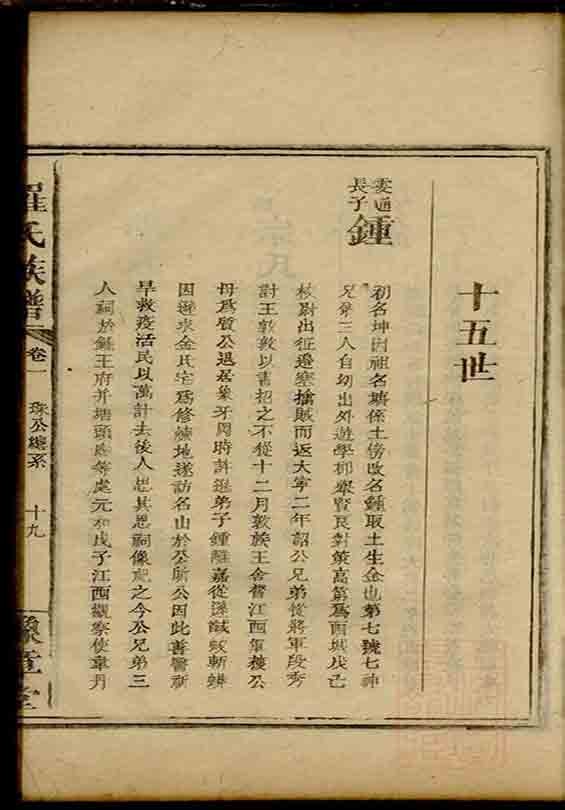 十五世
雯通
長子
鍾
初名坤因祖名塘係土傍改名鍾取土生金也第七號七神
兄弟三人自幼出外遊學抑舉賢良對策高第爲西城戊己
校尉出征邊塞擒賊而返大寧二年詔公兄弟從將軍段秀
討王敦敦以書招之不從十二月敦族王含督江西軍獲公
母爲質公退居象牙
因遊求金氏宅爲修煉地遂訪名山於公所公因此善醫
旱救疫活民以萬計去後人思其恩祠像祀之今公兄弟三
人祠於鍾王府并塘頭
元和戊子江西觀察使韋丹
羅氏族譜
卷一
珠公總系
十九
豫章堂